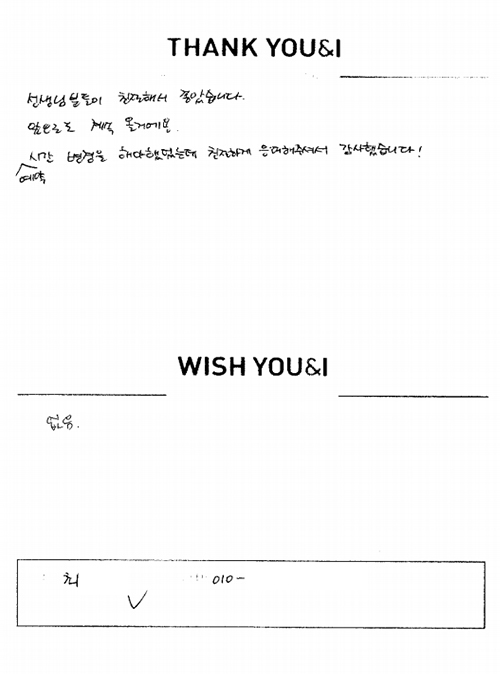 THANK YOU&I
선생님분들이 친절해서 좋았습니다.
앞으로도 계속 올거에요.
예약 시간 변경을 해다했었는데 친절하게 응대해주셔서 감사했습니다!
WISH YOU&I
없음.
최 010-